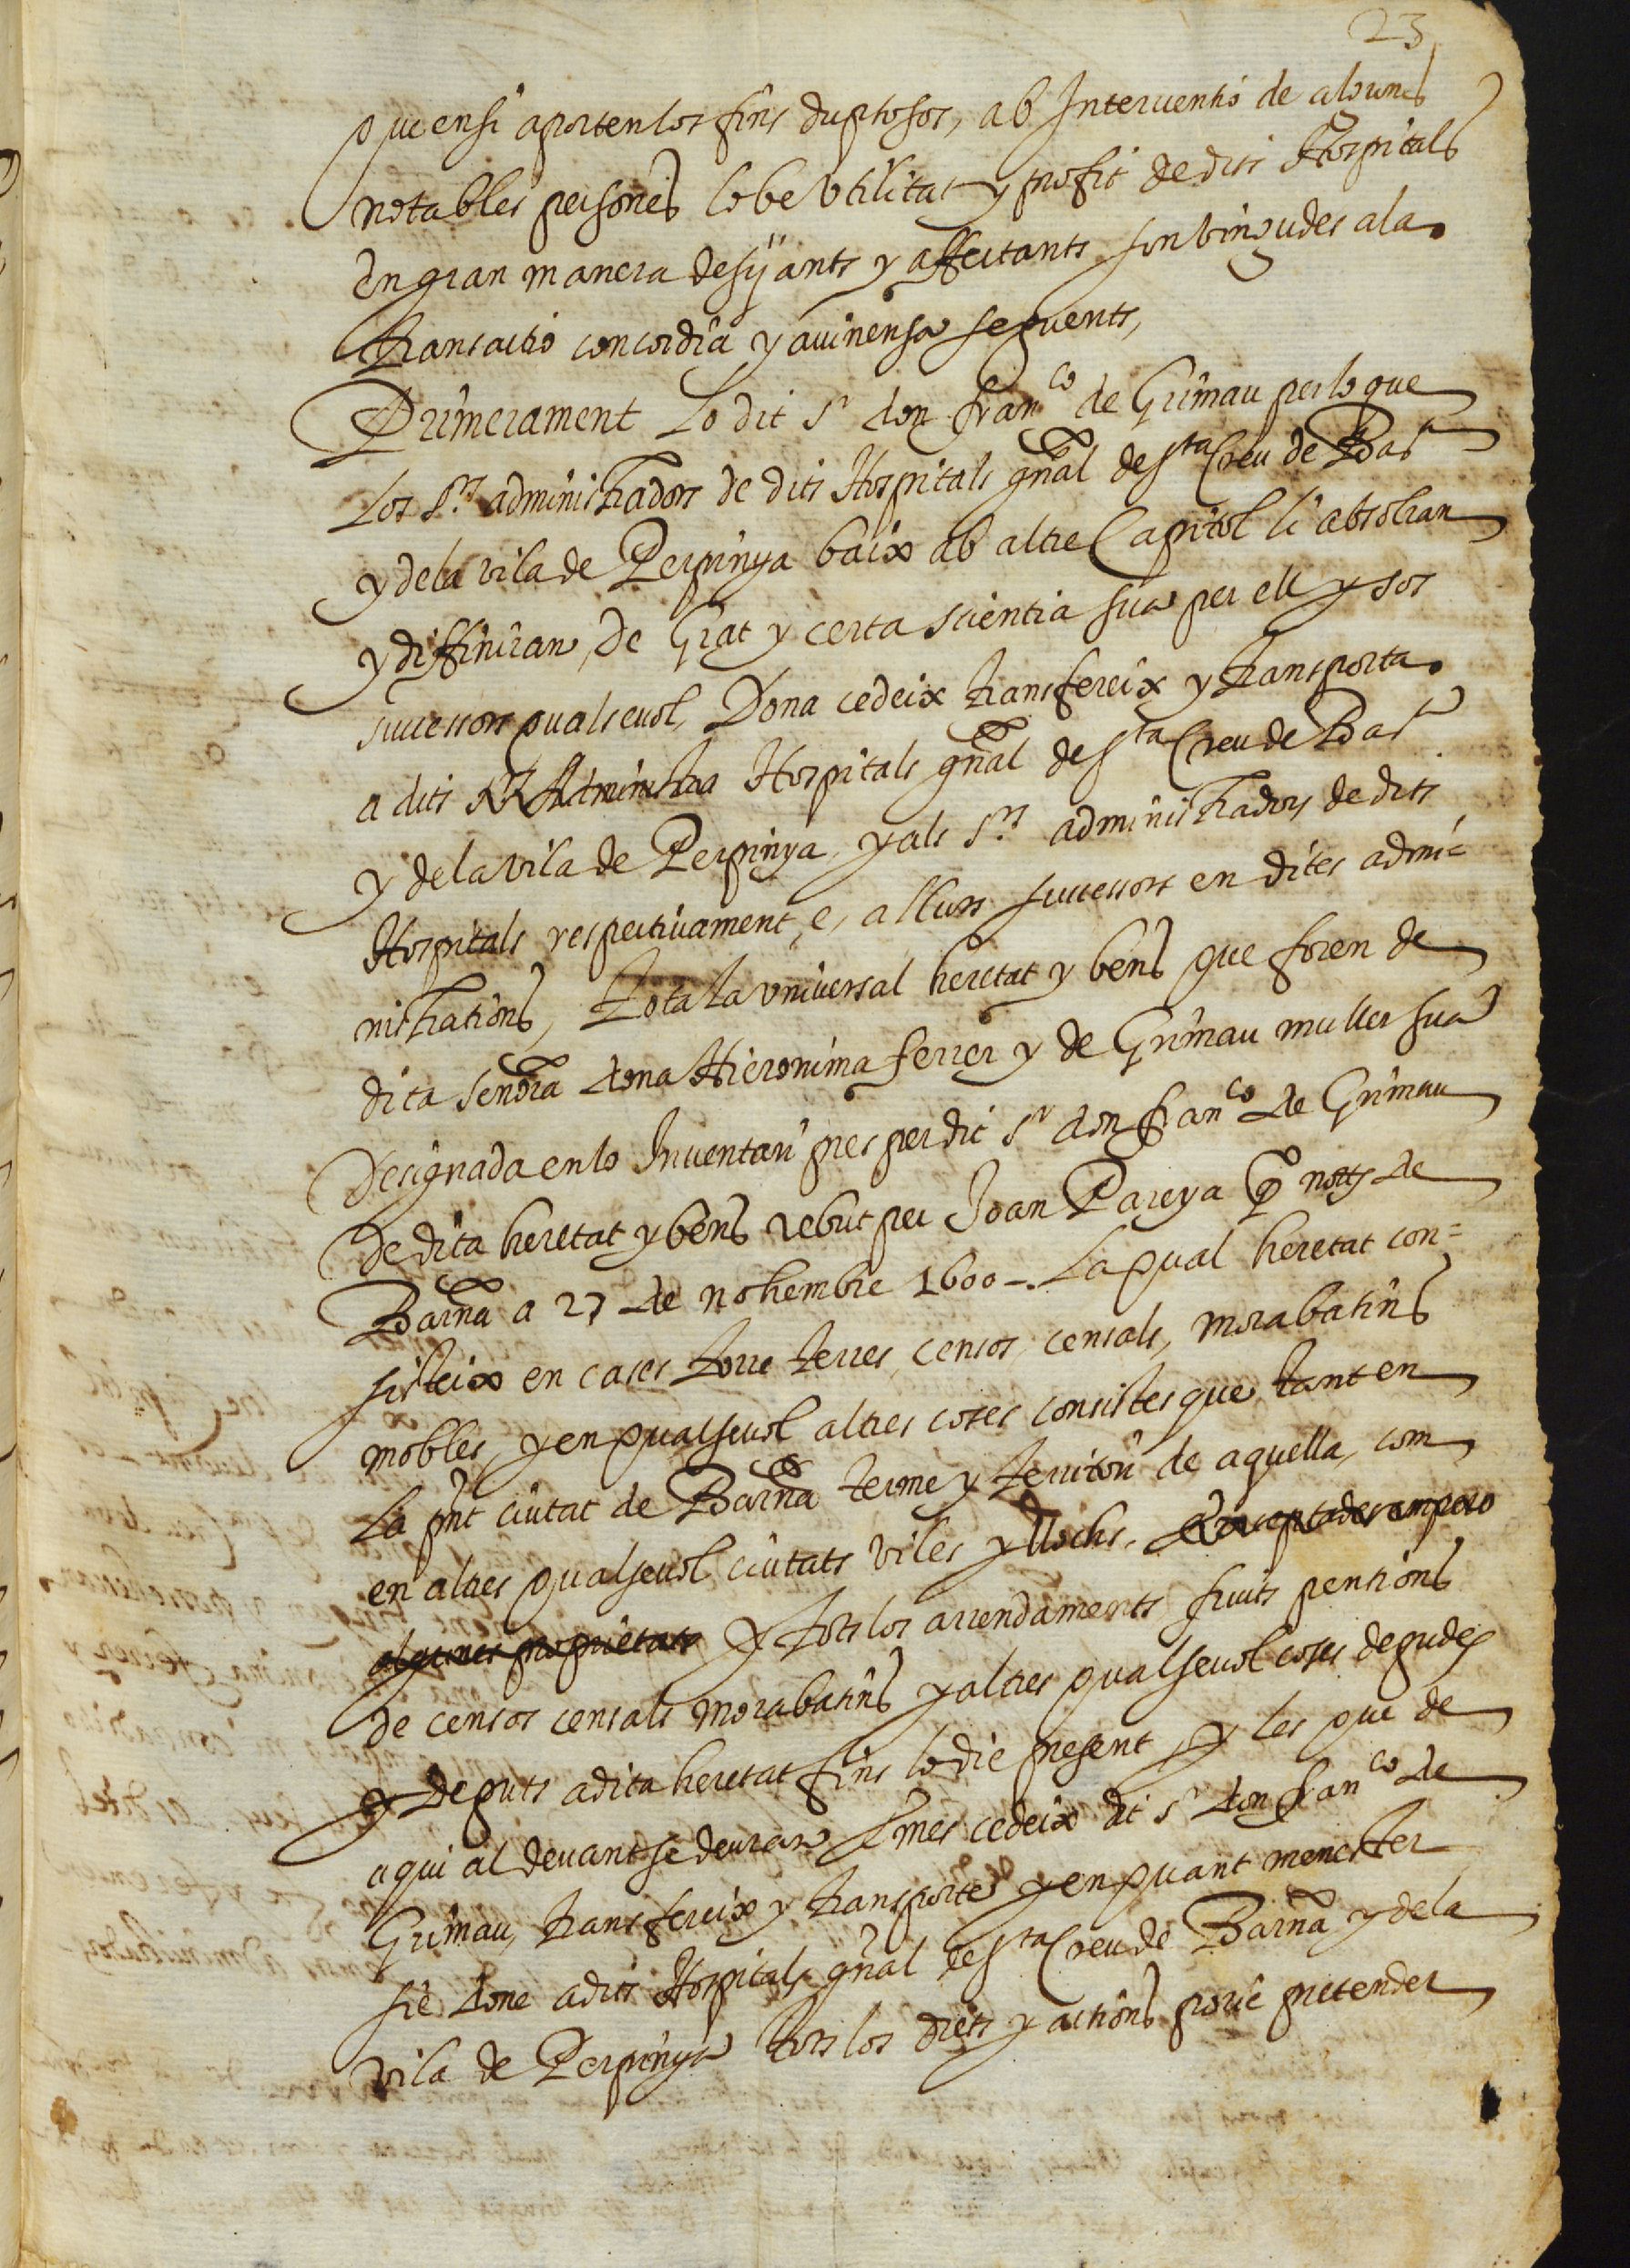 23
que ensi aporten los fins duptosos, ab Interuentio de alguns
notables persones lo be vtilitat y profit de dits Hospitals
en gran manera desijants y affectants, son vingudes ala
transactio concordia y auinensa seguents,
Primerament Lo dit Sr don franco de Grimau perlo que
Los Srs administradors de dits Hospitals gñal de Sta Creu de Bar
y dela vila de Perpinya baix ab altre Capitol li absolran
y diffiniran, De Grat y certa scientia sua per ell y sos
successors qualseuol, Dona cedeix transfereix y transporta
a dits Hospitals gñal de Sta Creu de Bar
y dela vila de Perpinya, y als Srs administradors de dits
Hospitals respectiuament, e, a llurs successors en dites admi=
nistrations, Tota la vniuersal heretat y bens que foren de
dita señora dona Hieronima ferrer y de Grimau muller sua
Designada en lo Inuentari pres per dit Sr don franco de Grimau
De dita heretat y bens rebut per Joan Pareya qo notts de
Barña a 27 de nohembre 1600 -. La qual heretat con=
sisteix en cases torre terres, censos, censals, morabatins
mobles, y en qualseuol altres coses consistes que tant en
La pñt ciutat de Barña terme y territori de aquella, com
en altres qualseuol ciutats viles y llochs. Exceptades empero
algunes proprietats y tots los arrendaments fruits pentions
de censos censals morabatins y altres qualseuol coses degudes
y deguts a dita heretat fins lo die present, y les que de
aqui al deuant se deuran Emes cedeix dit Sr don franco de
Grimau, transfereix y transporte y en quant menester
sie done a dits Hospitals gñal de Sta Creu de Barña y dela
vila de Perpinya tots los drets y actions, que pretender